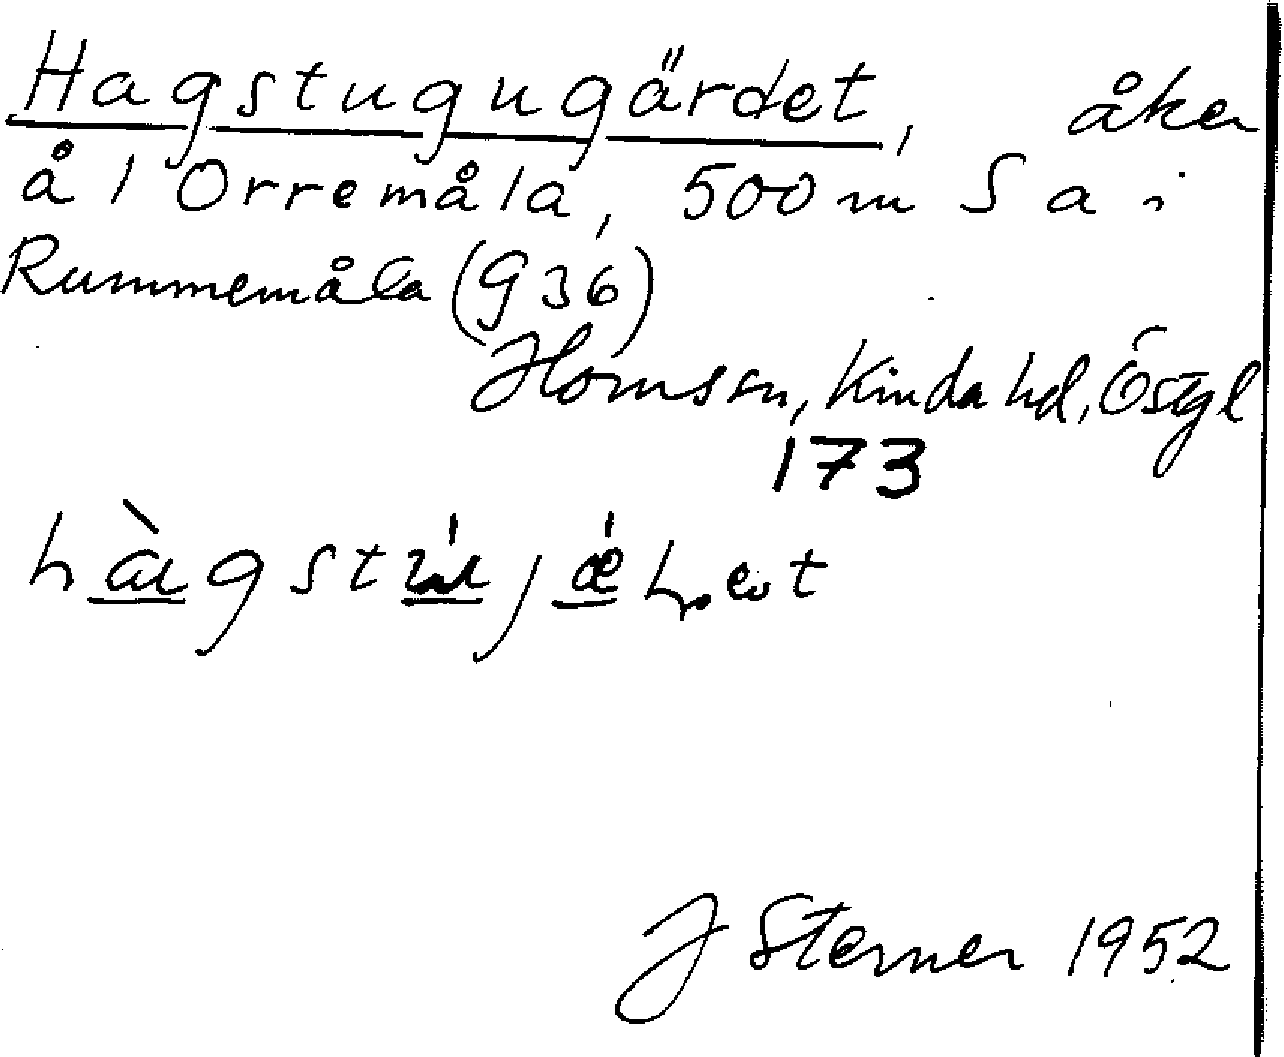 Hagstugugärdet, åker
å 1 Orremåla, 500 m S a i
Rummemåla (936)
Horns sn, Kinda hd, Östgl
173
J Sterner 1952